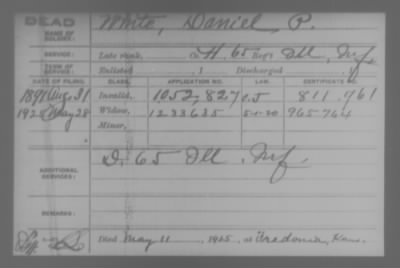 DEAD
NAME OF SOLDIER:
White, Daniel P.
SERVICE: Late rank, Co. H, 65 Reg't Ill. Inf.
TERM OF SERVICE: Enlisted , 1 Discharged , 1
DATE OF FILING. CLASS. APPLICATION NO. LAW. CERTIFICATE NO.
1891 Aug. 31 Invalid, 1052,827 811,961
1925 May 28 Widow, 1233635 5-1-20 965764
Minor,
ADDITIONAL SERVICES: D. 65 Ill. Inf.
REMARKS:
Died May 11, 1925, at Fredonia, Kan.